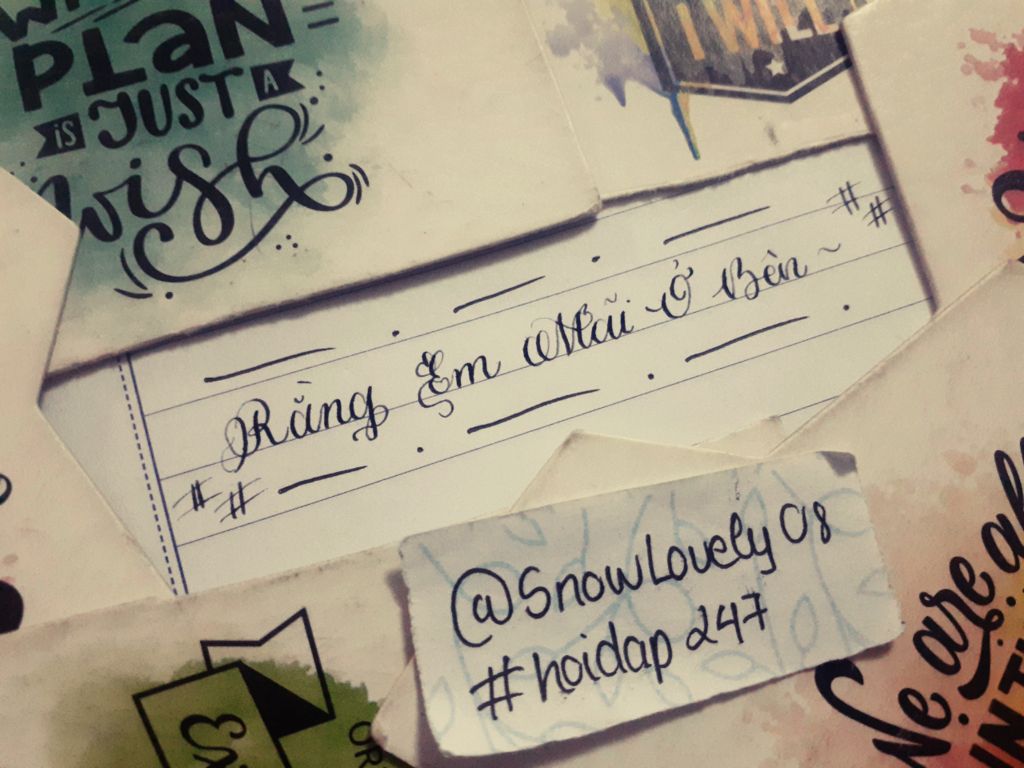 PLAN
IS JUST A
wish
I WILL
# #
Rằng Em Mãi Ở Bên ~
# #
@SnowLovely08
#hoidap247
We are all
IN THE
OR